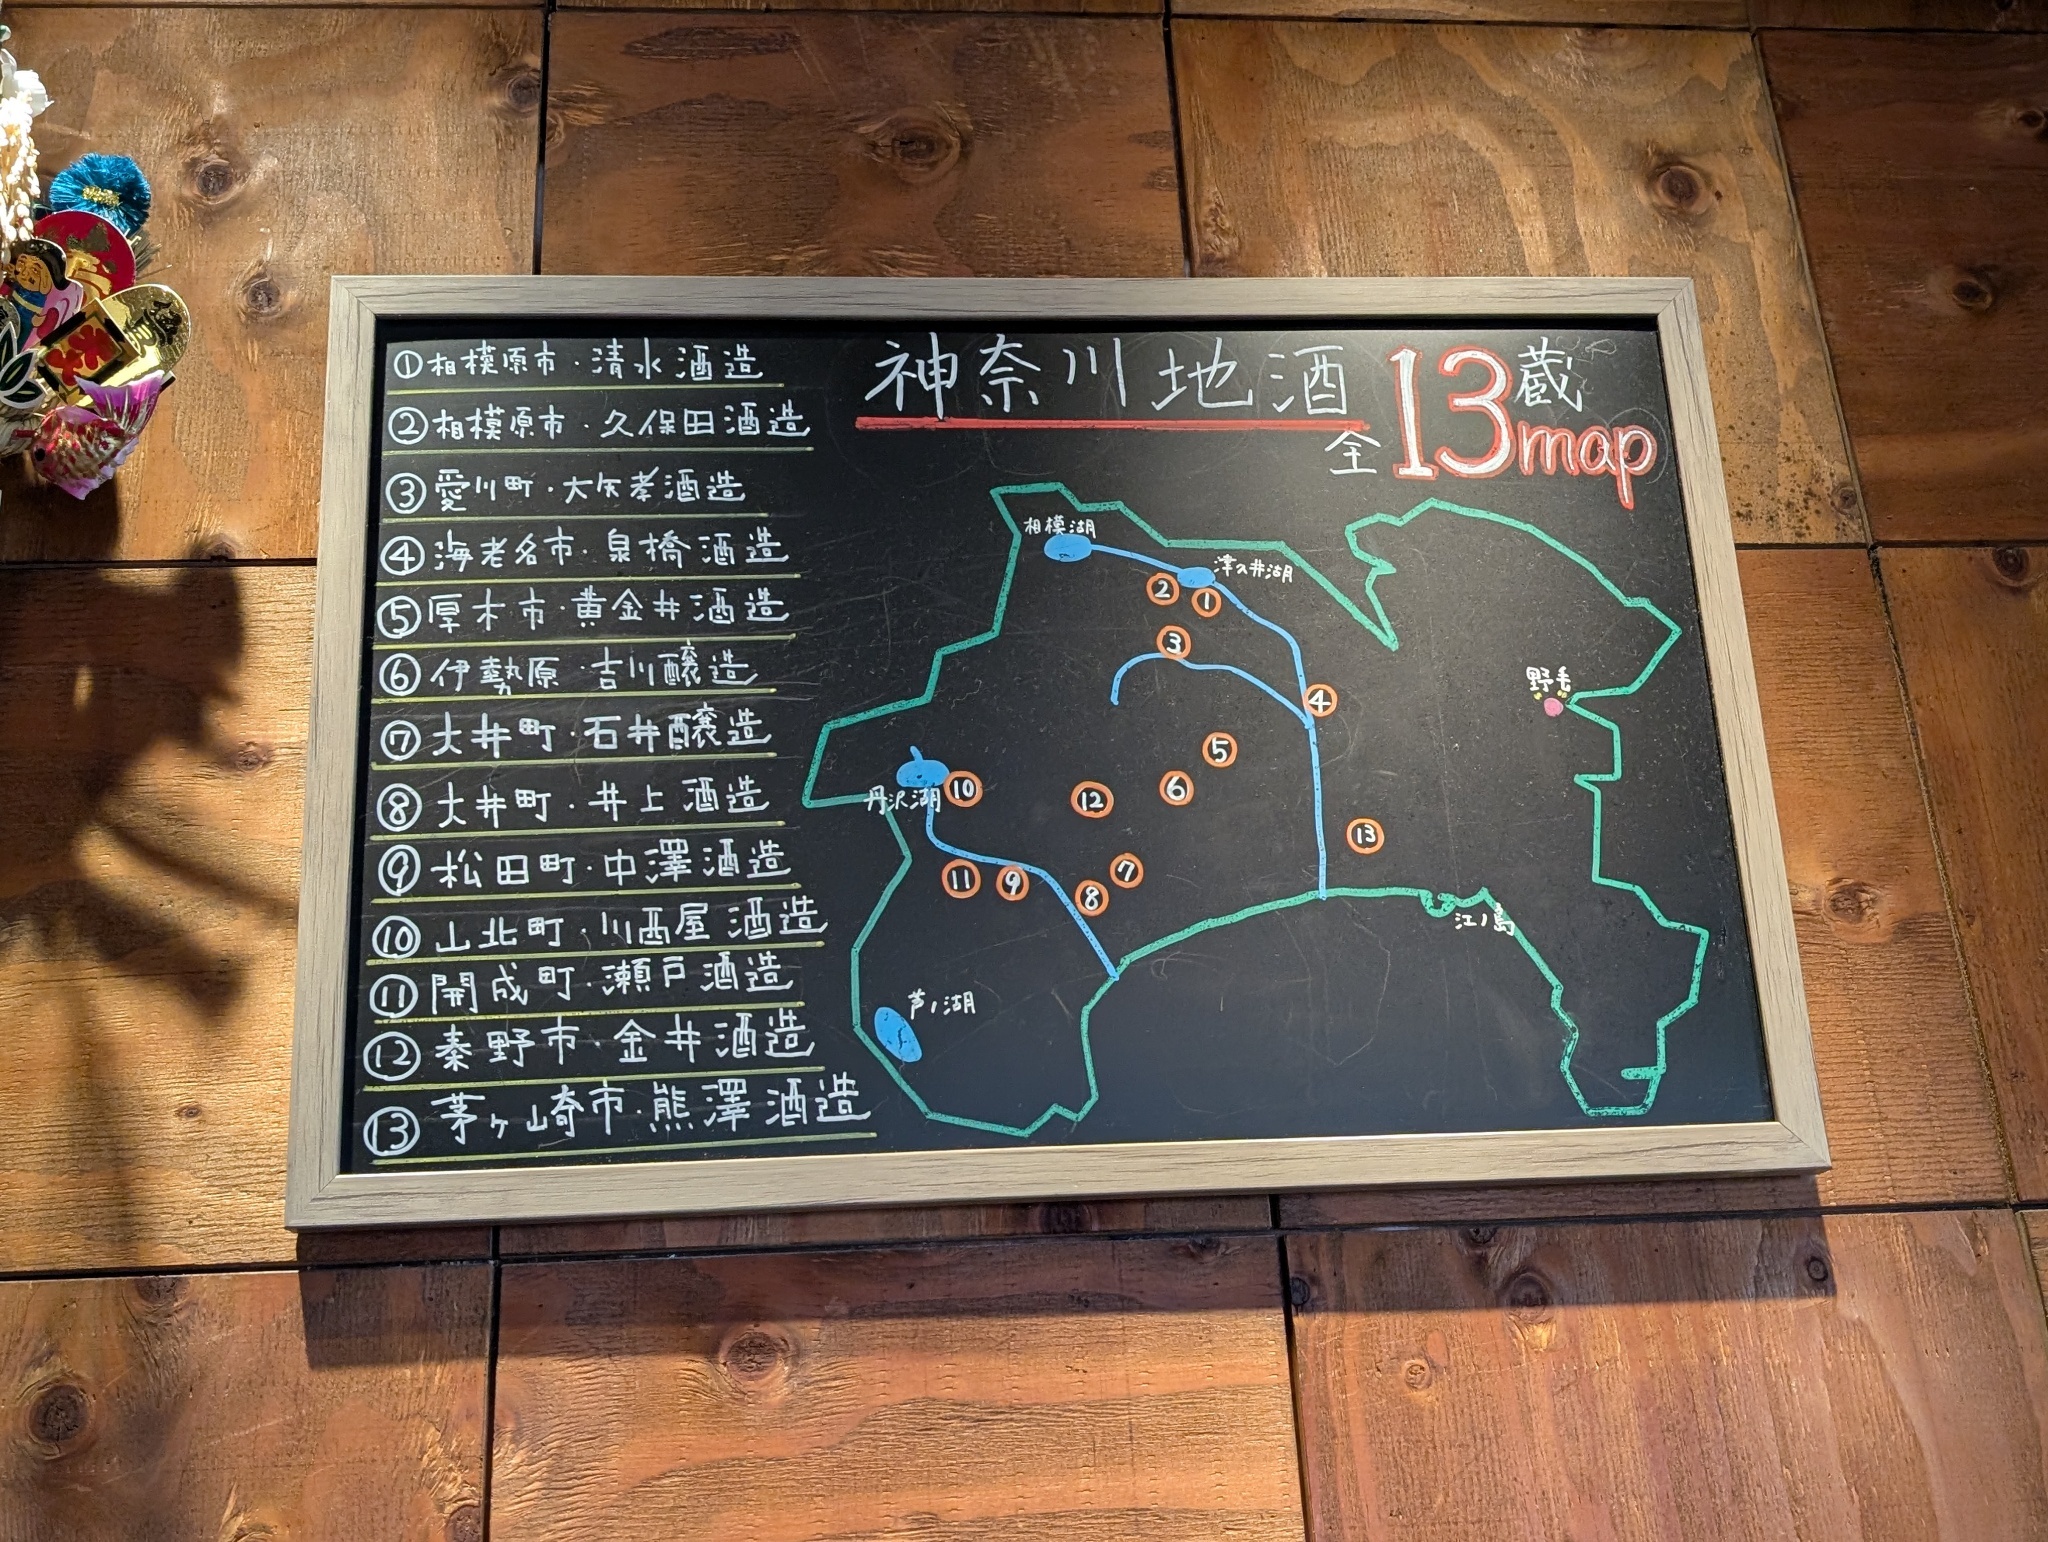 ①相模原市・清水酒造
②相模原市・久保田酒造
③愛川町・大矢孝酒造
④海老名市・泉橋酒造
⑤厚木市・黄金井酒造
⑥伊勢原・吉川醸造
⑦大井町・石井醸造
⑧大井町・井上酒造
⑨松田町・中澤酒造
⑩山北町・川西屋酒造
⑪開成町・瀬戸酒造
⑫秦野市・金井酒造
⑬茅ヶ崎市・熊澤酒造
神奈川地酒
全13蔵map
相模湖
津久井湖
②
①
③
④
野毛
⑤
丹沢湖
⑩
⑫
⑥
⑬
⑪
⑨
⑧
⑦
江ノ島
芦ノ湖